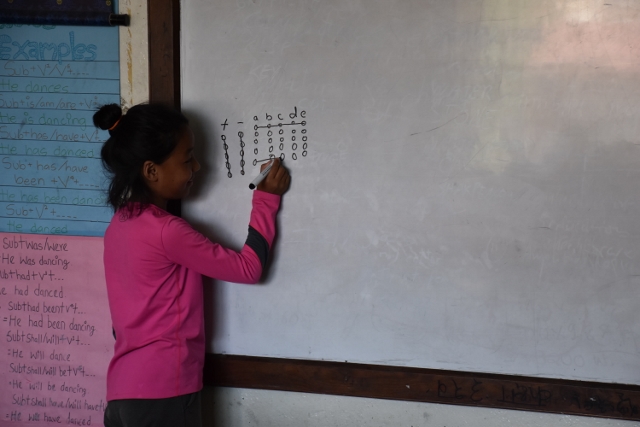 Examples
He dances
He is dancing
Sub+has/have
been +V⁴...
He has been dancing
Sub+V²+....
He danced
Sub+was/were
He was dancing
Sub+had+V³+...
He had danced
Sub+had been+V⁴+...
=He had been dancing
Sub+shall/will+V¹+...
=He will dance
Sub+shall/will be+V⁴+...
=He will be dancing
Sub+shall have/will have+
=He will have danced
+ - a b c d e